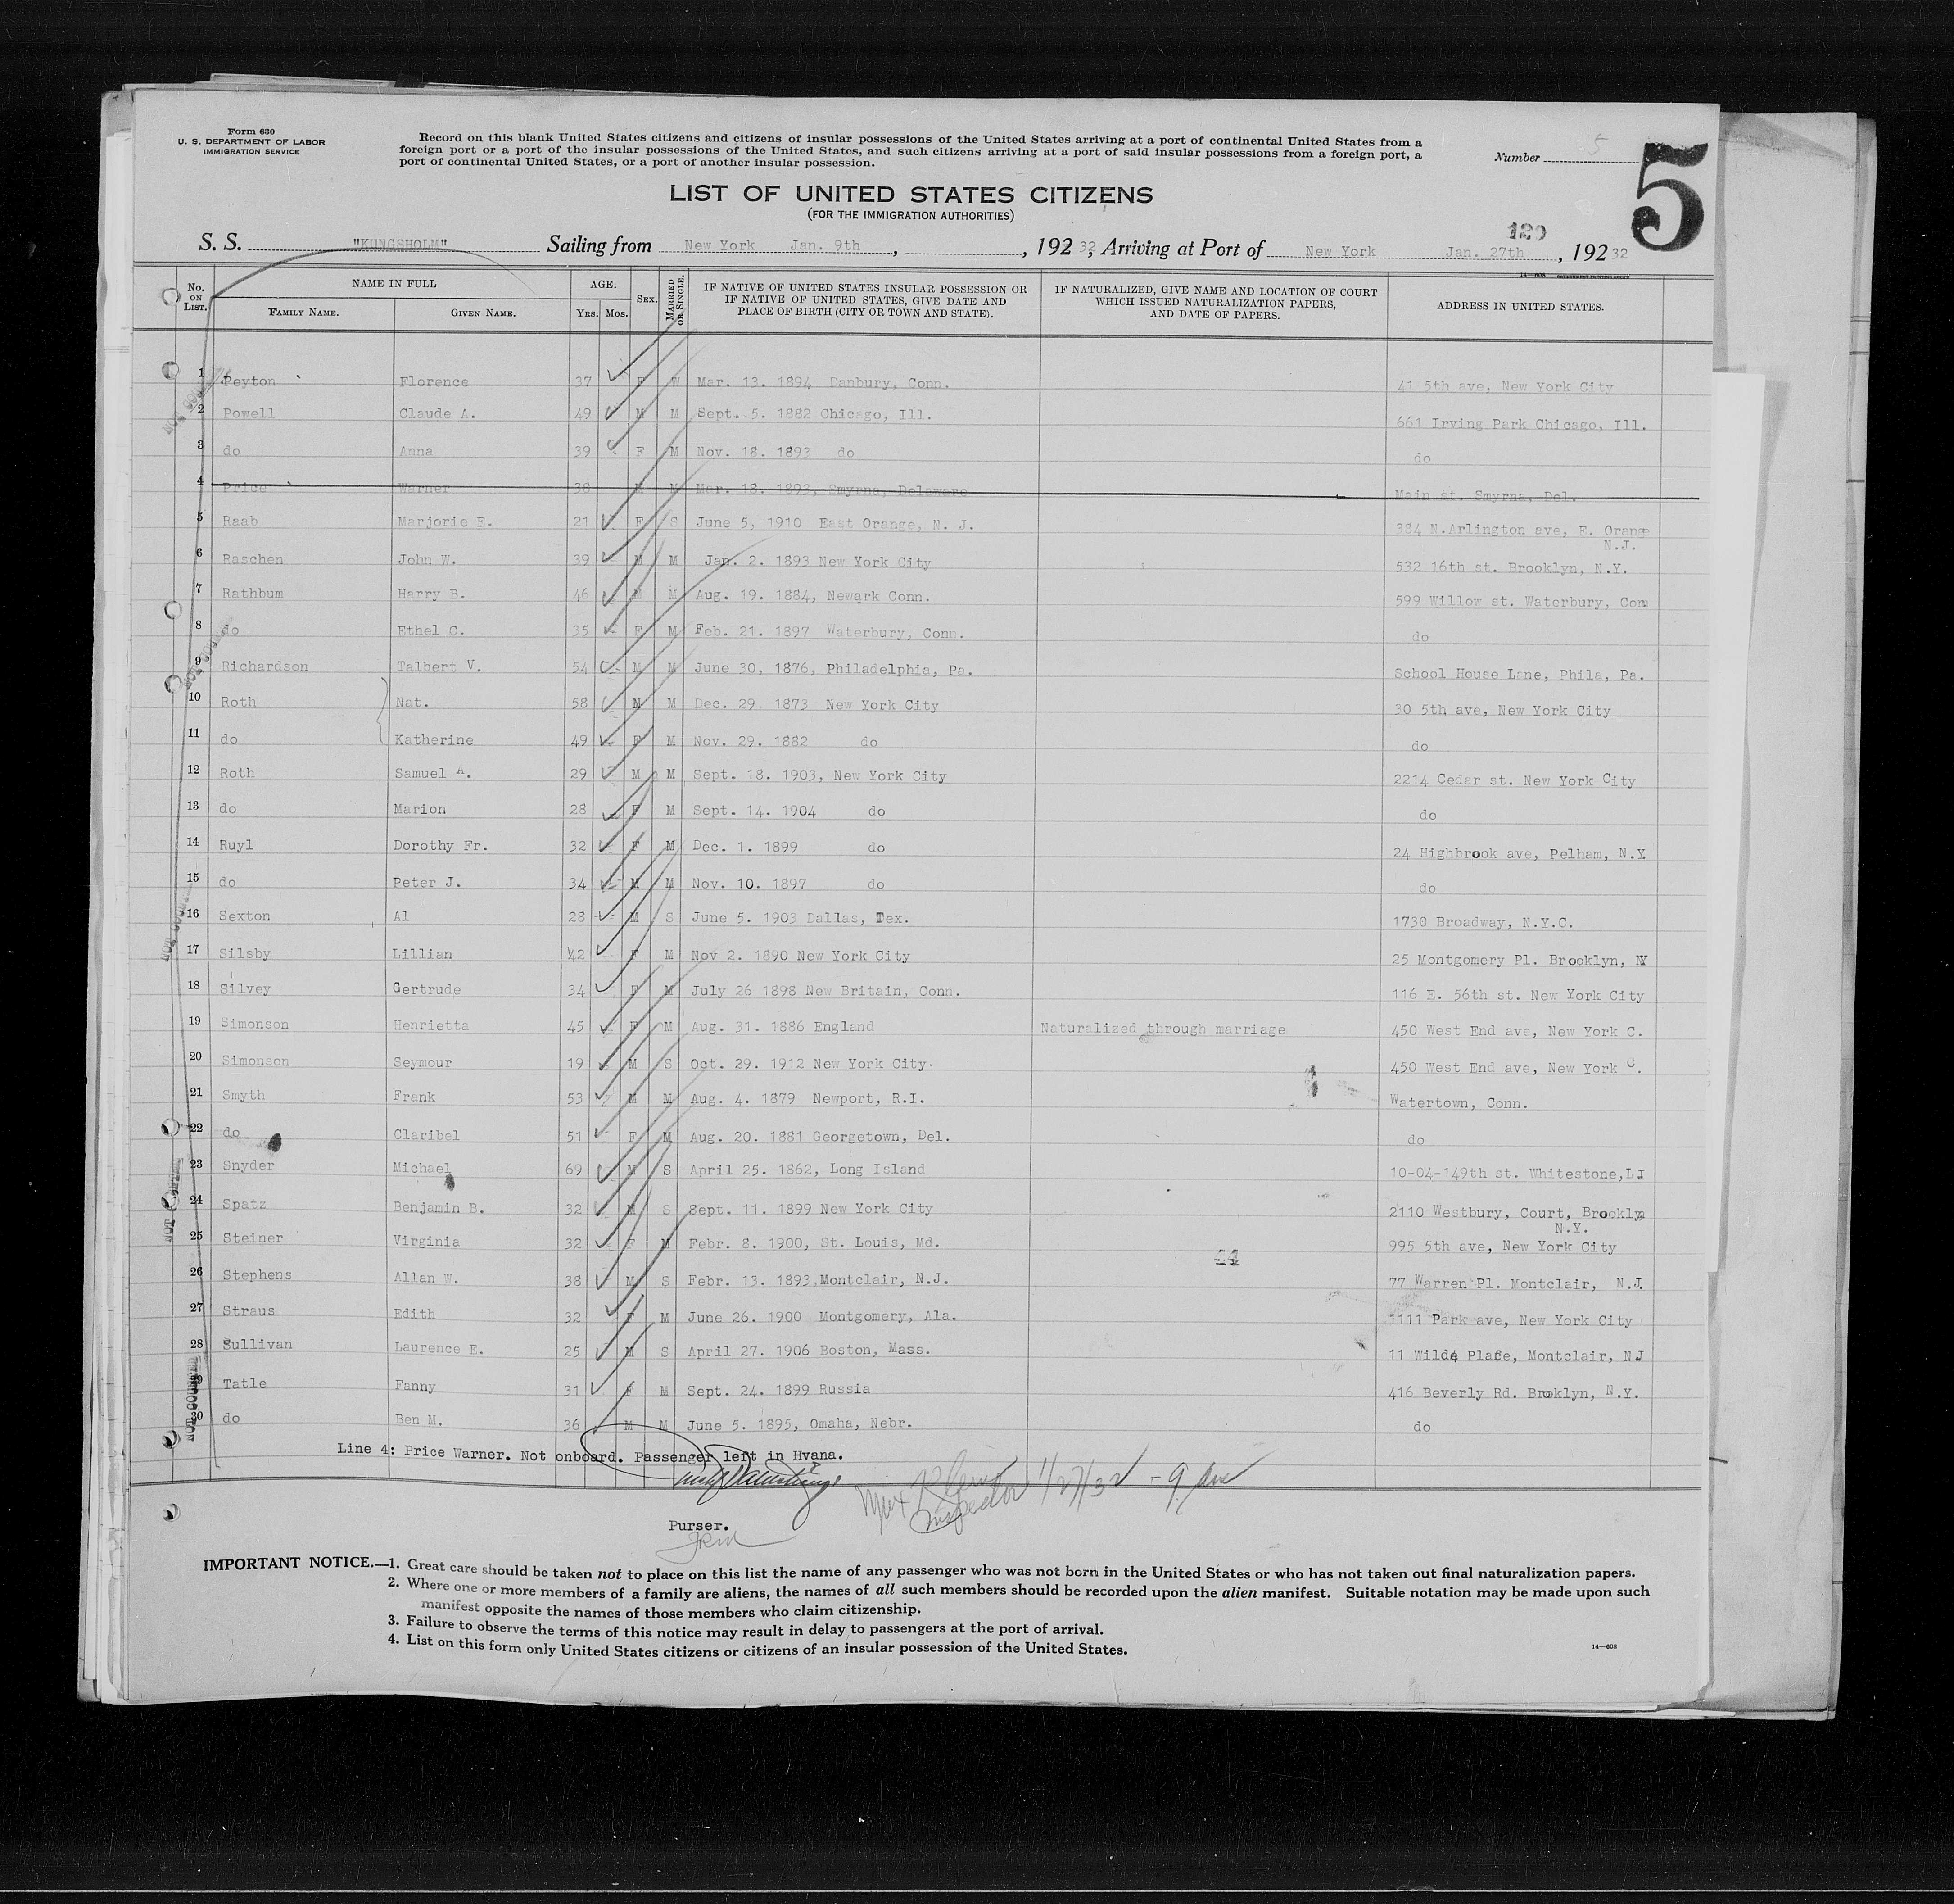 Form 630
U. S. DEPARTMENT OF LABOR
IMMIGRATION SERVICE
Record on this blank United States citizens and citizens of insular possessions of the United States arriving at a port of continental United States from a
foreign port or a port of the insular possessions of the United States, and such citizens arriving at a port of said insular possessions from a foreign port, a
port of continental United States, or a port of another insular possession.
Number 5
5
LIST OF UNITED STATES CITIZENS
(FOR THE IMMIGRATION AUTHORITIES)
120
S. S. "KUNGSHOLM" Sailing from New York Jan. 9th , , 192 32, Arriving at Port of New York Jan. 27th , 192 32
14—608 GOVERNMENT PRINTING OFFICE
No. ON LIST. NAME IN FULL AGE. SEX. MARRIED OR SINGLE. IF NATIVE OF UNITED STATES INSULAR POSSESSION OR IF NATIVE OF UNITED STATES, GIVE DATE AND PLACE OF BIRTH (CITY OR TOWN AND STATE). IF NATURALIZED, GIVE NAME AND LOCATION OF COURT WHICH ISSUED NATURALIZATION PAPERS, AND DATE OF PAPERS. ADDRESS IN UNITED STATES.
FAMILY NAME. GIVEN NAME. YRS. MOS.
1 Peyton Florence 37 F W Mar. 13. 1894 Danbury, Conn. 41 5th ave, New York City
2 Powell Claude A. 49 M M Sept. 5. 1882 Chicago, Ill. 661 Irving Park Chicago, Ill.
3 do Anna 39 F M Nov. 18. 1893 do do
4 Price Warner 38 M M Mar. 18. 1893, Smyrna, Delaware Main st. Smyrna, Del.
5 Raab Marjorie E. 21 F S June 5, 1910 East Orange, N. J. 384 N.Arlington ave, E. Orange
N.J.
6 Raschen John W. 39 M M Jan. 2. 1893 New York City 532 16th st. Brooklyn, N.Y.
7 Rathbum Harry B. 46 M M Aug. 19. 1884, Newark Conn. 599 Willow st. Waterbury, Con
8 do Ethel C. 35 F M Feb. 21. 1897 Waterbury, Conn. do
9 Richardson Talbert V. 54 M M June 30, 1876, Philadelphia, Pa. School House Lane, Phila, Pa.
10 Roth Nat. 58 M M Dec. 29. 1873 New York City 30 5th ave, New York City
11 do Katherine 49 F M Nov. 29. 1882 do do
12 Roth Samuel A. 29 M M Sept. 18. 1903, New York City 2214 Cedar st. New York City
13 do Marion 28 F M Sept. 14. 1904 do do
14 Ruyl Dorothy Fr. 32 F M Dec. 1. 1899 do 24 Highbrook ave, Pelham, N.Y
15 do Peter J. 34 M M Nov. 10. 1897 do do
16 Sexton Al 28 M S June 5. 1903 Dallas, Tex. 1730 Broadway, N.Y.C.
17 Silsby Lillian 42 F M Nov 2. 1890 New York City 25 Montgomery Pl. Brooklyn, NY
18 Silvey Gertrude 34 F M July 26 1898 New Britain, Conn. 116 E. 56th st. New York City
19 Simonson Henrietta 45 F M Aug. 31. 1886 England Naturalized through marriage 450 West End ave, New York C.
20 Simonson Seymour 19 M S Oct. 29. 1912 New York City. 450 West End ave, New York C.
21 Smyth Frank 53 M M Aug. 4. 1879 Newport, R.I. Watertown, Conn.
22 do Claribel 51 F M Aug. 20. 1881 Georgetown, Del. do
23 Snyder Michael 69 M S April 25. 1862, Long Island 10-04-149th st. Whitestone,LI
24 Spatz Benjamin B. 32 M S Sept. 11. 1899 New York City 2110 Westbury, Court, Brooklyn
N.Y.
25 Steiner Virginia 32 F M Febr. 8. 1900, St. Louis, Md. 995 5th ave, New York City
26 Stephens Allan W. 38 M S Febr. 13. 1893,Montclair, N.J. 77 Warren Pl. Montclair, N.J
27 Straus Edith 32 F M June 26. 1900 Montgomery, Ala. 1111 Park ave, New York City
28 Sullivan Laurence E. 25 M S April 27. 1906 Boston, Mass. 11 Wilde Place, Montclair, NJ
29 Tatle Fanny 31 F M Sept. 24. 1899 Russia 416 Beverly Rd. Brooklyn, N.Y.
30 do Ben M. 36 M M June 5. 1895, Omaha, Nebr. do
Line 4: Price Warner. Not onboard. Passenger left in Hvana.
Inspector 1/27/32 - 9 am
Purser.
IMPORTANT NOTICE.—1. Great care should be taken not to place on this list the name of any passenger who was not born in the United States or who has not taken out final naturalization papers.
2. Where one or more members of a family are aliens, the names of all such members should be recorded upon the alien manifest. Suitable notation may be made upon such
manifest opposite the names of those members who claim citizenship.
3. Failure to observe the terms of this notice may result in delay to passengers at the port of arrival.
4. List on this form only United States citizens or citizens of an insular possession of the United States.
14—608